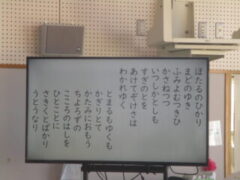 ほたるのひかり
まどのゆき
ふみよむつきひ
かさねつつ
いつしかとしも
すぎのとを
あけてぞけさは
わかれゆく
とまるもゆくも
かぎりとて
かたみにおもう
ちよろずの
こころのはしを
ひとことに
さきくとばかり
うとうなり